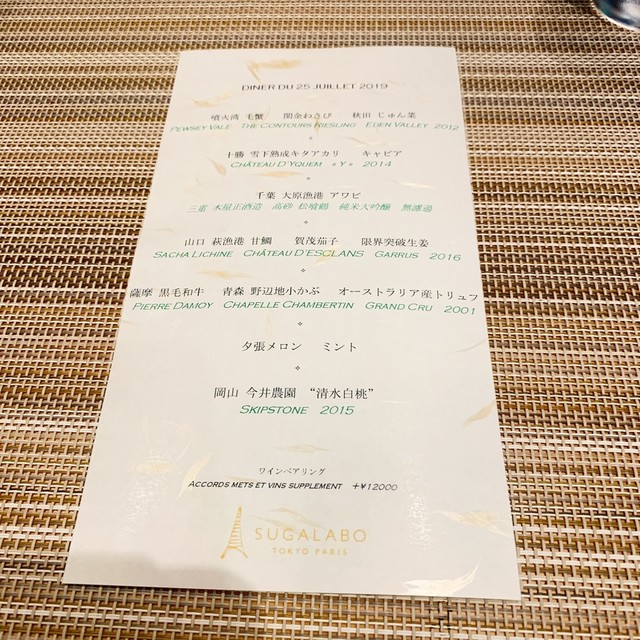 DINER DU 25 JUILLET 2019
噴火湾 毛蟹 闇金ねさび 秋田 じゅん菜
PEWSEY VALE THE CONTOURS RIESLING EDEN VALLEY 2012
十勝 雪下熟成キタアカリ キャビア
CHÂTEAU D'YQUEM «Y» 2014
千葉 大原漁港 アワビ
三重 木屋正酒造 高砂 松喰鶴 純米大吟醸 無濾過
山口 萩漁港 甘鯛 賀茂茄子 限界突破生姜
SACHA LICHINE CHÂTEAU D'ESCLANS GARRUS 2016
薩摩 黒毛和牛 青森 野辺地小かぶ オーストラリア産トリュフ
PIERRE DAMOY CHAPELLE CHAMBERTIN GRAND CRU 2001
夕張メロン ミント
岡山 今井農園 “清水白桃”
SKIPSTONE 2015
ワインペアリング
ACCORDS METS ET VINS SUPPLEMENT +¥12000
SUGALABO
TOKYO PARIS